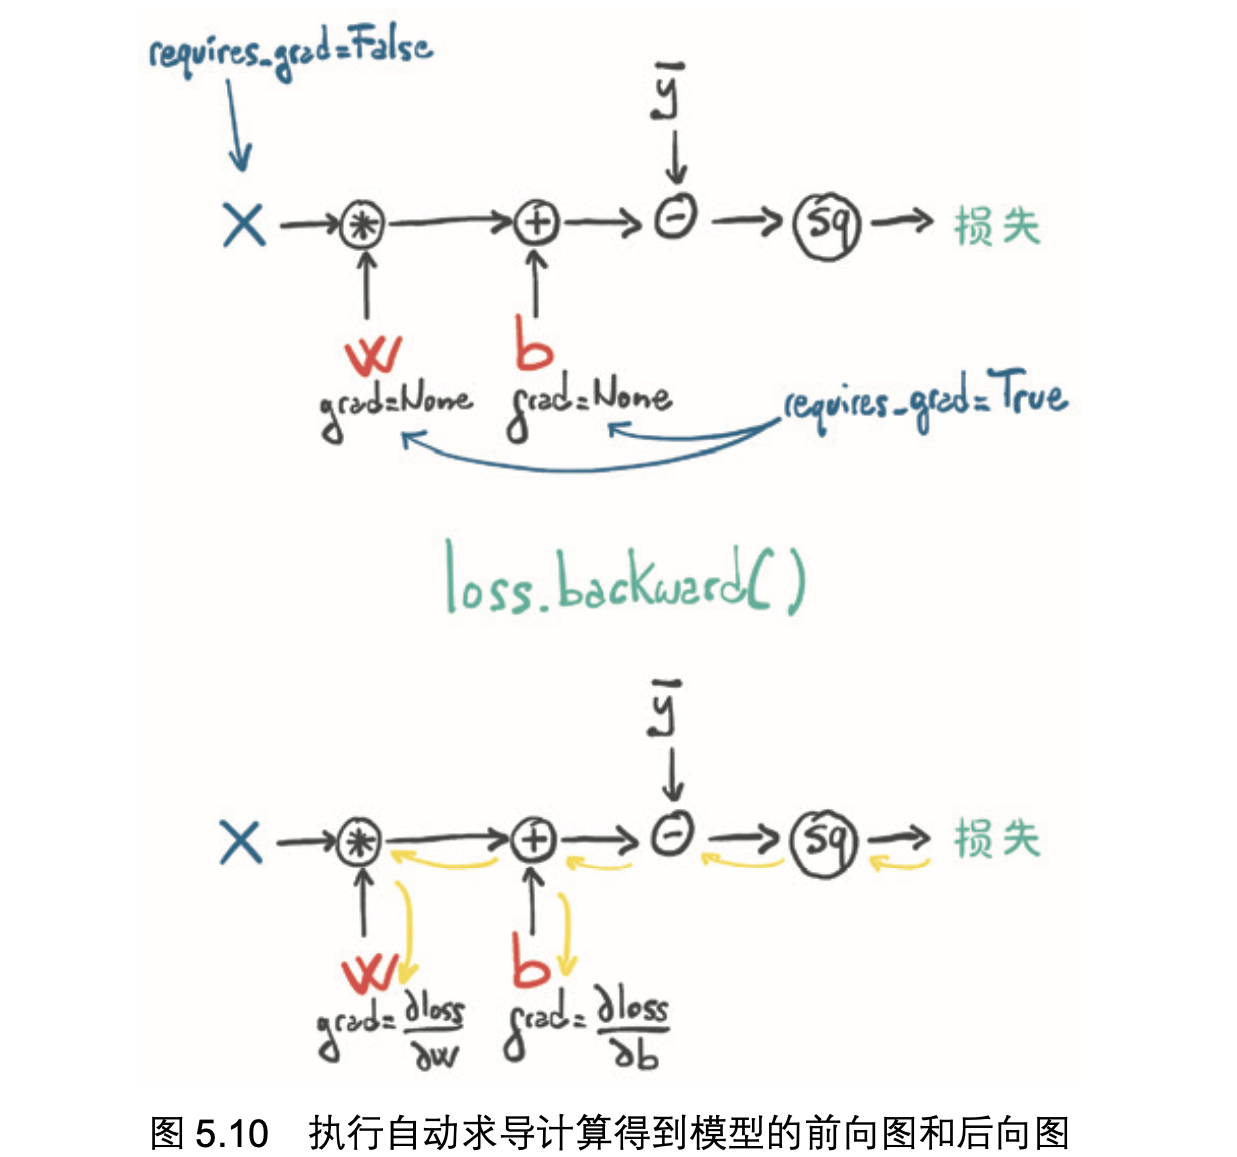 requires_grad=False
ȳ
X * + - sq 损失
w b
grad=None grad=None requires_grad=True
loss.backward()
ȳ
X * + - sq 损失
w b
grad=∂loss/∂w grad=∂loss/∂b
图 5.10 执行自动求导计算得到模型的前向图和后向图